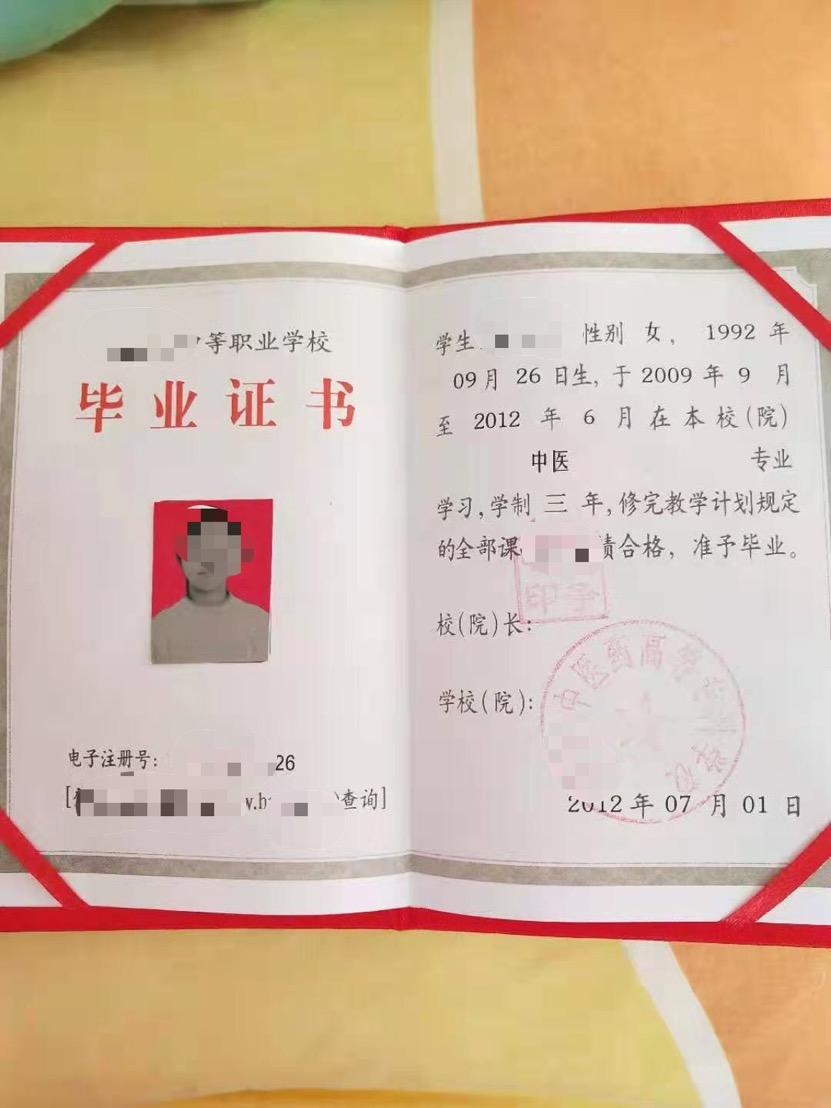 等职业学校
毕业证书
电子注册号: 26
查询]
学生 性别 女, 1992 年
09月 26 日生, 于 2009 年 9 月
至 2012 年 6 月在本校(院)
中医 专业
学习, 学制 三 年, 修完教学计划规定
的全部课 绩合格, 准予毕业。
印予
校(院)长:
中医药高等
学校(院):
2012年 07 月 01 日